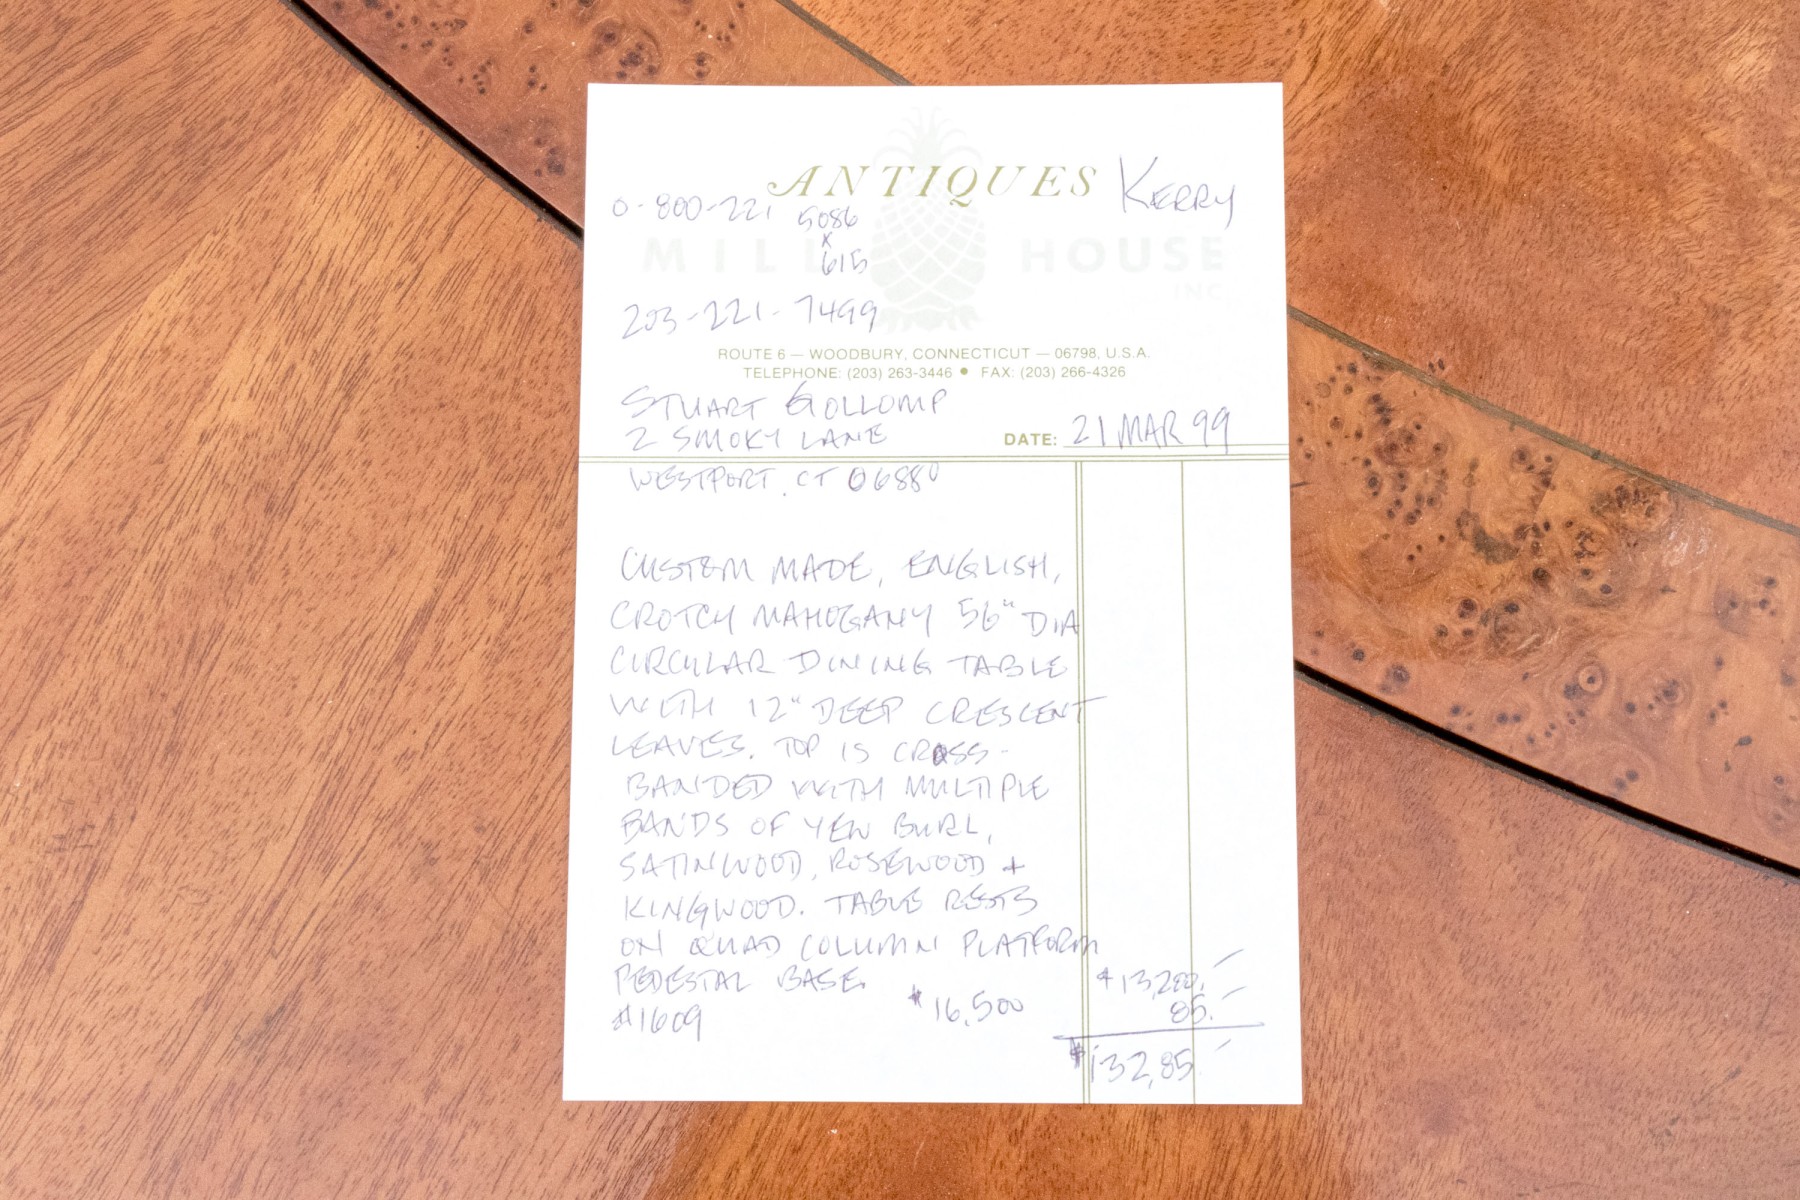 ANTIQUES
KERRY
0-800-221 5086
x
615
MILL HOUSE
INC.
203-221-7499
ROUTE 6 — WOODBURY, CONNECTICUT — 06798, U.S.A.
TELEPHONE: (203) 263-3446 ● FAX: (203) 266-4326
STUART GOLLOMP
2 SMOKY LANE
DATE: 21 MAR 99
WESTPORT, CT 06880
CUSTOM MADE, ENGLISH,
CROTCH MAHOGANY 56" DIA
CIRCULAR DINING TABLE
WITH 12" DEEP CRESCENT
LEAVES. TOP IS CROSS-
BANDED WITH MULTIPLE
BANDS OF YEW BURL,
SATINWOOD, ROSEWOOD +
KINGWOOD. TABLE RESTS
ON QUAD COLUMN PLATFORM
PEDESTAL BASE.
$13,200.—
#1609
$16,500
85.—
$132,85.—